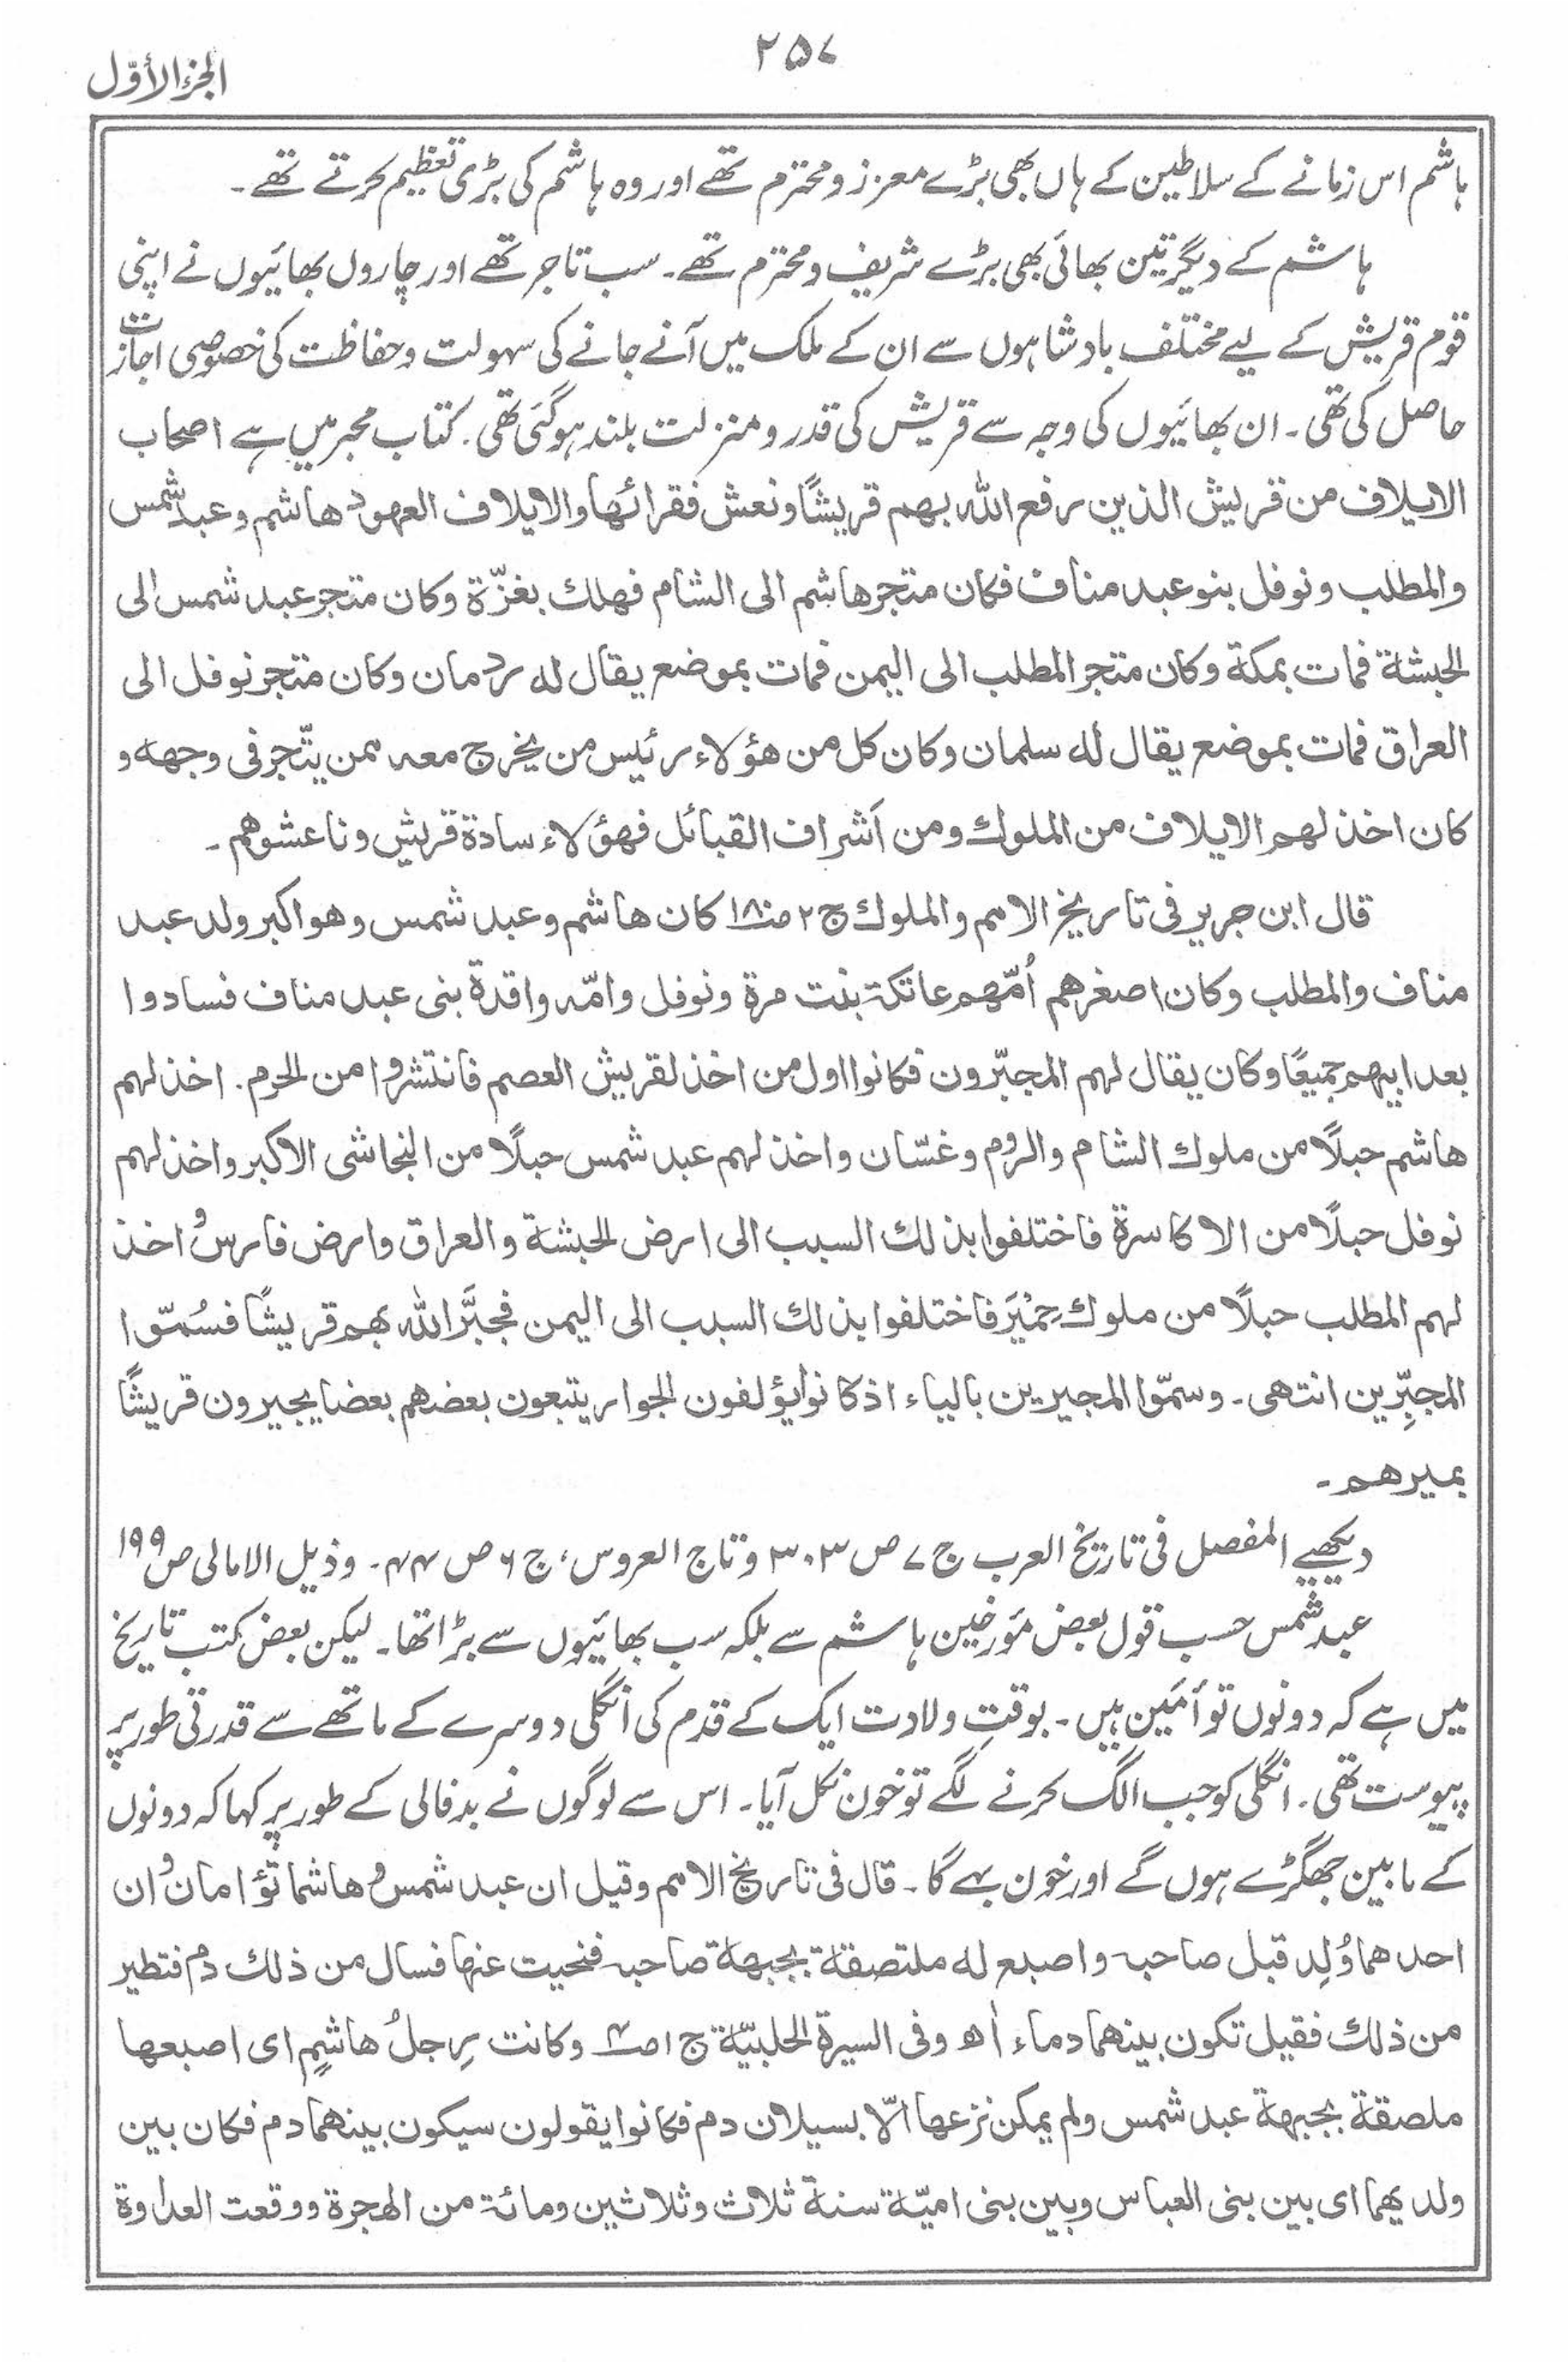 ۲۵۷
الجزء الأوّل
ہاشم اس زمانے کے سلاطین کے ہاں بھی بڑے معزز و محترم تھے اور وہ ہاشم کی بڑی تعظیم کرتے تھے۔
ہاشم کے دیگر تین بھائی بھی بڑے شریف و محترم تھے۔ سب تاجر تھے اور چاروں بھائیوں نے اپنی
قوم قریش کے لیے مختلف بادشاہوں سے ان کے ملک میں آنے جانے کی سہولت و حفاظت کی خصوصی اجازت
حاصل کی تھی۔ ان بھائیوں کی وجہ سے قریش کی قدر و منزلت بلند ہوگئی تھی۔ کتاب محبر میں ہے اصحاب
الایلاف من قریش الذین رفع اللہ بھم قریشًا و نعش فقرائھا والایلاف العھود ھاشم و عبد شمس
والمطلب و نوفل بنو عبد مناف فکان متجر ھاشم الی الشام فھلك بغزّة وکان متجر عبد شمس الی
الحبشة فمات بمکة وکان متجر المطلب الی الیمن فمات بموضع یقال لہ ردمان وکان متجر نوفل الی
العراق فمات بموضع یقال لہ سلمان وکان کل من ھؤلاء رئیس من یخرج معہ ممن یتّجر فی وجھہ و
کان اخذ لھم الایلاف من الملوك ومن اَشراف القبائل فھؤلاء سادة قریش وناعشوھم۔
قال ابن جریر فی تاریخ الامم والملوك ج ۲ صـ۱۸۰ کان ھاشم و عبد شمس وھو اکبر ولد عبد
مناف والمطلب وکان اصغرھم اُمّھم عاتکة بنت مرة ونوفل وامّہ واقدة بنی عبد مناف فسادوا
بعد ابیھم جمیعًا وکان یقال لھم المجبّرون فکانوا اول من اخذ لقریش العصم فانتشروا من الحرم۔ اخذ لھم
ھاشم حبلًا من ملوك الشام والروم وغسّان واخذ لھم عبد شمس حبلًا من النجاشی الاکبر واخذ لھم
نوفل حبلًا من الاکاسرة فاختلفوا بذلك السبب الی ارض الحبشة والعراق وارض فارس و اخذ
لھم المطلب حبلًا من ملوك حِمْیَر فاختلفوا بذلك السبب الی الیمن فجبَّر اللہ بھم قریشًا فسُمّوا
المجبِّرین انتھی۔ وسمّوا المجیرین بالیاء اذ کانوا یؤلفون الجوار یتبعون بعضھم بعضا یجیرون قریشًا
بمیرھم۔
دیکھیے المفصل فی تاریخ العرب ج ۷ ص ۳۰۳ و تاج العروس، ج ۶ ص ۴۴۔ و ذیل الامالی ص ۱۹۹
عبد شمس حسب قول بعض مؤرخین ہاشم سے بلکہ سب بھائیوں سے بڑا تھا۔ لیکن بعض کتب تاریخ
میں ہے کہ دونوں توأمَین ہیں۔ بوقتِ ولادت ایک کے قدم کی انگلی دوسرے کے ماتھے سے قدرتی طور پر
پیوست تھی۔ انگلی کو جب الگ کرنے لگے تو خون نکل آیا۔ اس سے لوگوں نے بدفالی کے طور پر کہا کہ دونوں
کے مابین جھگڑے ہوں گے اور خون بہے گا۔ قال فی تاریخ الامم وقیل ان عبد شمس و ھاشما تؤامان و ان
احدھما وُلِد قبل صاحبہ و اصبع لہ ملتصقة بجبھة صاحبہ فنحیت عنھا فسال من ذلك دم فتطیر
من ذلك فقیل تکون بینھما دماء اھ وفی السیرة الحلبیّة ج ۱ صـ۴ وکانت رِجلُ ھاشمٍ ای اصبعھا
ملصقة بجبھة عبد شمس ولم یمکن نزعھا الّا بسیلان دم فکانوا یقولون سیکون بینھما دم فکان بین
ولدیھما ای بین بنی العباس وبین بنی امیّة سنة ثلاث وثلاثین ومائة من الھجرة ووقعت العداوة